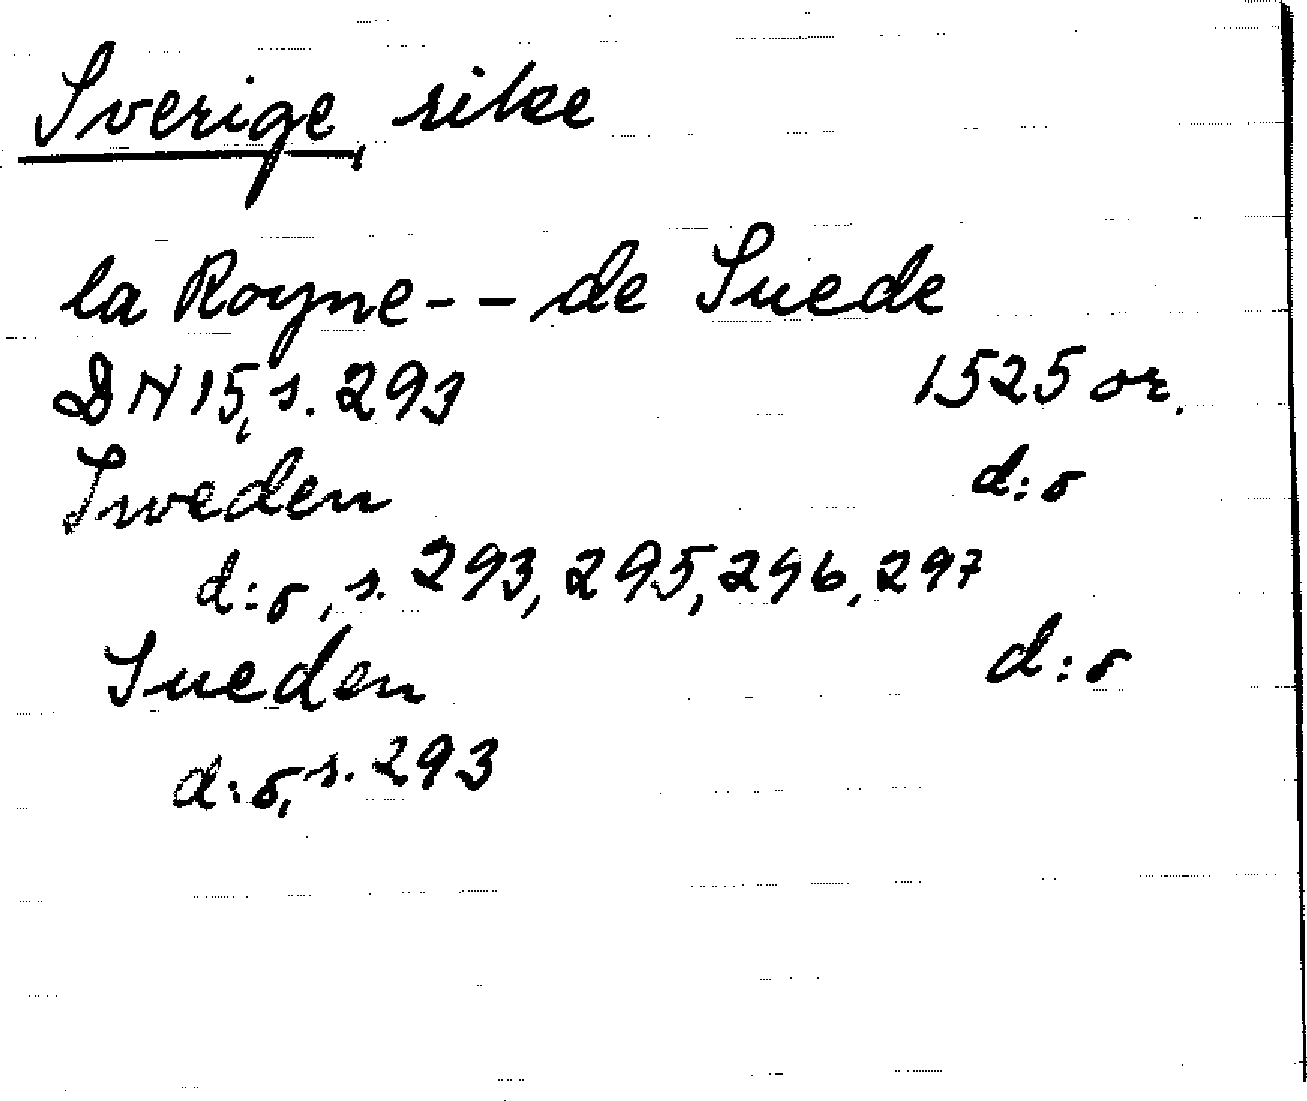 Sverige, rike
la Royne -- de Suede
DN 15, s. 293 1525 or.
Sweden d:o
d:o, s. 293, 295, 296, 297
Sueden d:o
d:o, s. 293